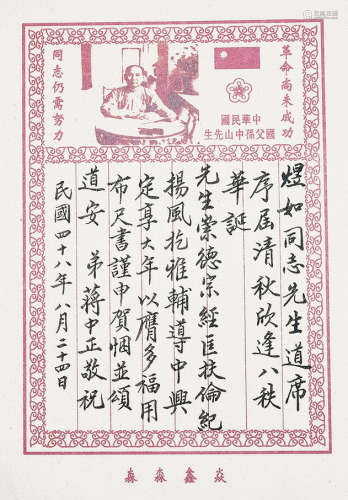 革命尚未成功
同志仍需努力
中華民國
國父孫中山先生
煜如同志先生道席
序屆清秋欣逢八秩
華誕
先生崇德宗經匡扶倫紀
揚風扢雅輔導中興
定享大年以膺多福用
布尺書謹申賀悃並頌
道安 弟蔣中正敬祝
民國四十八年八月二十四日
淼森鑫焱